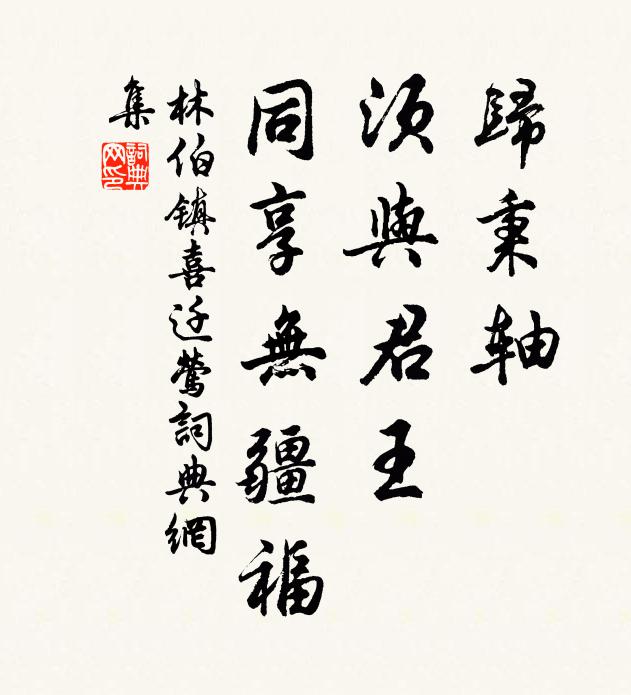 歸秉軸
須與君王
同享無疆福
林伯鎮喜迁鶯詞典網
集
詞典
网印